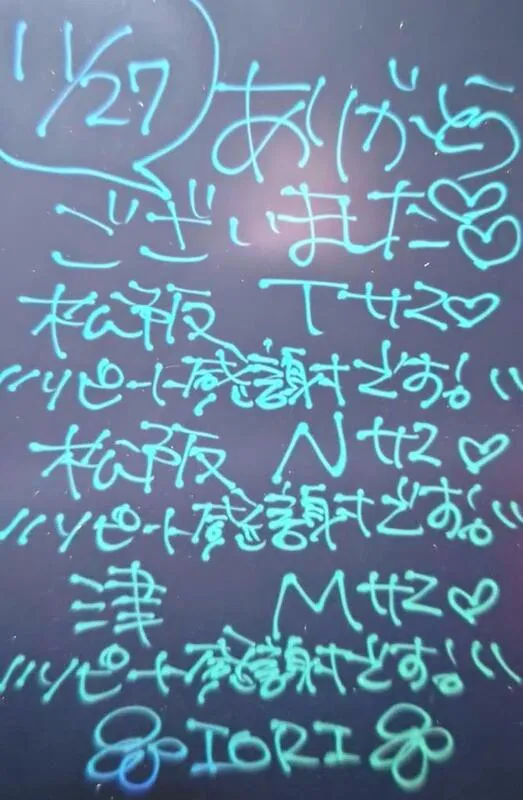 11/27
ありがとう
ございました♡♡
松阪 Tサマ♡
\\リピート感謝です!//
松阪 Nサマ♡
\\リピート感謝です!//
津 Mサマ♡
\\リピート感謝です!//
IORI